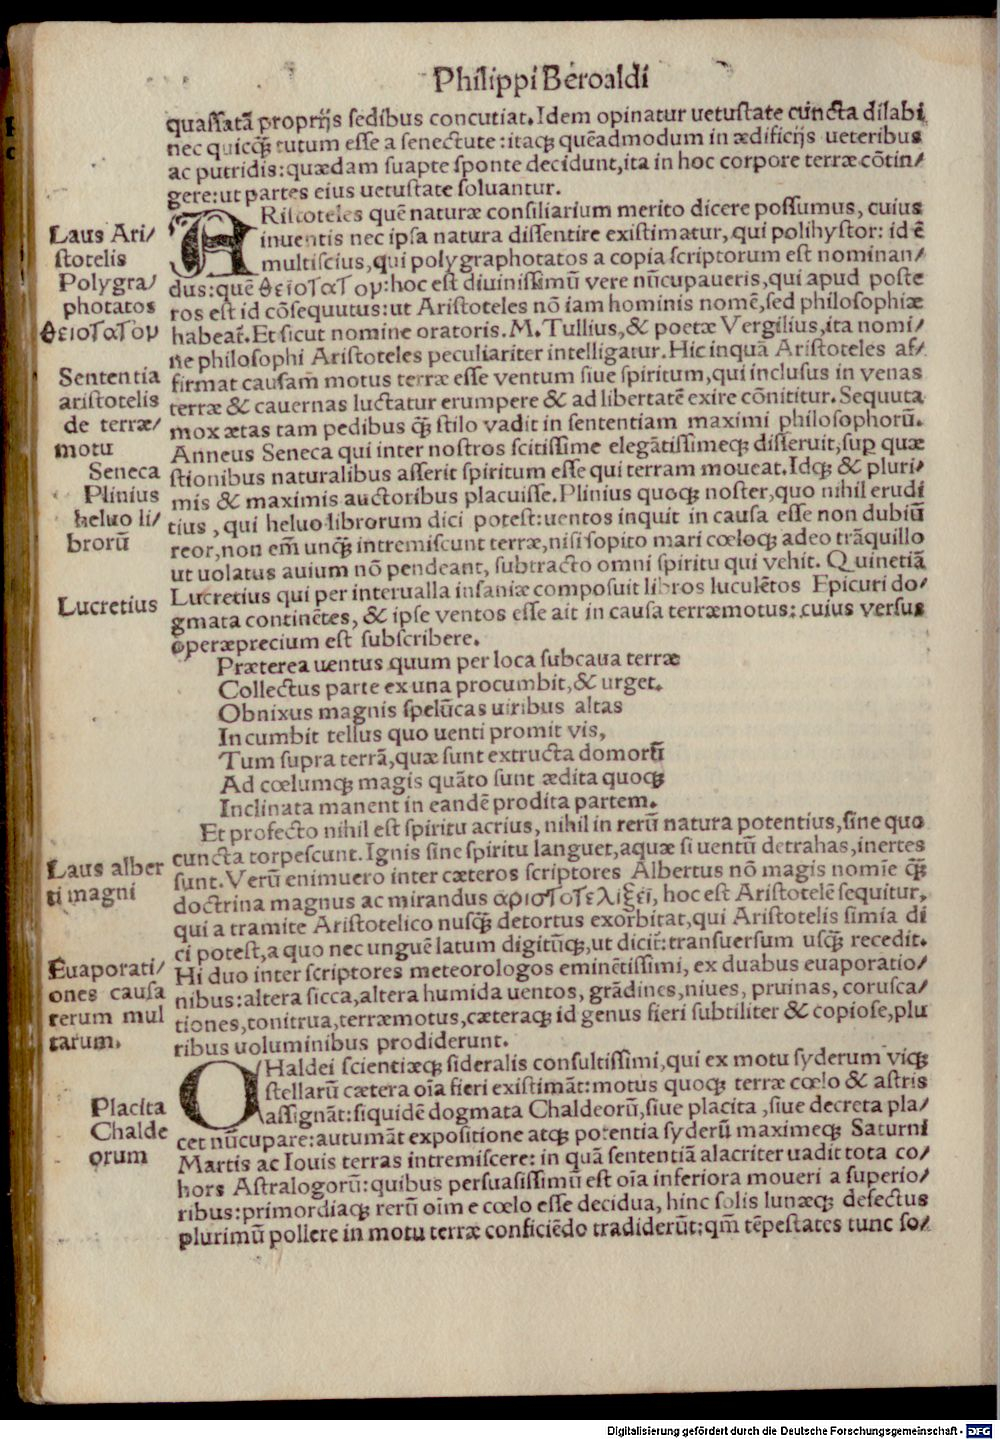 Philippi Beroaldi
quassatā proprijs sedibus concutiat. Idem opinatur uetustate cuncta dilabi
nec quicꝗ̄ tutum esse a senectute: itaqꝫ quēadmodum in ædificijs ueteribus
ac putridis: quædam suapte sponte decidunt, ita in hoc corpore terræ cōtin/
gere: ut partes eius uetustate soluantur.
Laus Ari/
stotelis
Polygra/
photatos
θειοτατον
Sententia
aristotelis
de terræ/
motu
Seneca
Plinius
heluo li/
brorū
Lucretius
ARistoteles quē naturæ consiliarium merito dicere possumus, cuius
inuentis nec ipsa natura dissentire existimatur, qui polihystor: id ē
multiscius, qui polygraphotatos a copia scriptorum est nominan/
dus: quē θειοτατον: hoc est diuinissimū vere nūcupaueris, qui apud poste
ros est id cōsequutus: ut Aristoteles nō iam hominis nomē, sed philosophiæ
habeat̄. Et sicut nomine oratoris. M. Tullius, & poetæ Vergilius, ita nomi/
ne philosophi Aristoteles peculiariter intelligatur. Hic inquā Aristoteles af/
firmat causam motus terræ esse ventum siue spiritum, qui inclusus in venas
terræ & cauernas luctatur erumpere & ad libertatē exire cōnititur. Sequuta
mox ætas tam pedibus ꝗ̄ stilo vadit in sententiam maximi philosophorū.
Anneus Seneca qui inter nostros scitissime elegātissimeqꝫ disseruit, suꝑ quæ
stionibus naturalibus asserit spiritum esse qui terram moueat. Idqꝫ & pluri/
mis & maximis auctoribus placuisse. Plinius quoqꝫ noster, quo nihil erudi
tius, qui heluo librorum dici potest: uentos inquit in causa esse non dubiū
reor, non em̄ unꝗ̄ intremiscunt terræ, nisi sopito mari cœloqꝫ adeo trāquillo
ut uolatus auium nō pendeant, subtracto omni spiritu qui vehit. Quinetiā
Lucretius qui per interualla insaniæ composuit libros luculētos Epicuri do/
gmata continētes, & ipse ventos esse ait in causa terræmotus: cuius versus
operæprecium est subscribere.
Præterea uentus quum per loca subcaua terræ
Collectus parte ex una procumbit, & urget.
Obnixus magnis spelūcas uiribus altas
Incumbit tellus quo uenti promit vis,
Tum supra terrā, quæ sunt extructa domorū
Ad cœlumqꝫ magis quāto sunt ædita quoqꝫ
Inclinata manent in eandē prodita partem.
Laus alber
ti magni
Euaporati/
ones causa
rerum mul
tarum.
Et profecto nihil est spiritu acrius, nihil in rerū natura potentius, sine quo
cuncta torpescunt. Ignis sine spiritu languet, aquæ si uentū detrahas, inertes
sunt. Verū enimuero inter cæteros scriptores Albertus nō magis nomīe ꝗ̄
doctrina magnus ac mirandus αριστοτελιζει, hoc est Aristotelē sequitur,
qui a tramite Aristotelico nusꝗ̄ detortus exorbitat, qui Aristotelis simia di
ci potest, a quo nec unguē latum digitūqꝫ, ut dicit̄: transuersum usꝗ̄ recedit.
Hi duo inter scriptores meteorologos eminētissimi, ex duabus euaporatio/
nibus: altera sicca, altera humida uentos, grādines, niues, pruinas, corusca/
tiones, tonitrua, terræmotus, cæteraqꝫ id genus fieri subtiliter & copiose, plu
ribus uoluminibus prodiderunt.
Placita
Chalde
orum
CHaldei scientiæqꝫ sideralis consultissimi, qui ex motu syderum vicqꝫ
stellarū cætera oīa fieri existimāt: motus quoqꝫ terræ cœlo & astris
assignāt: siquidē dogmata Chaldeorū, siue placita, siue decreta pla/
cet nūcupare: autumāt expositione atqꝫ potentia syderū maximeqꝫ Saturni
Martis ac Iouis terras intremiscere: in quā sententiā alacriter uadit tota co/
hors Astralogorū: quibus persuasissimū est oīa inferiora moueri a superio/
ribus: primordiaqꝫ rerū oīm e cœlo esse decidua, hinc solis lunæqꝫ defectus
plurimū pollere in motu terræ conficiēdo tradiderūt: qm̄ tēpestates tunc so/
Digitalisierung gefördert durch die Deutsche Forschungsgemeinschaft - DFG